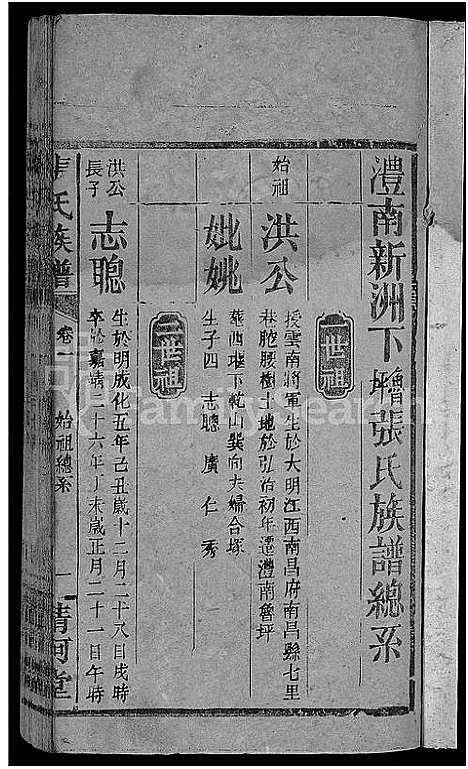 澧南新洲下 張氏族譜總系
一世祖
始祖
洪公
授雲南將軍生於大明江西南昌府南昌縣七里
巷腔腰樹土地於弘治初年遷澧南魯坪
妣姚
葬西堰下乾山巽向夫婦合塚
生子四 志聰 廣 仁 秀
二世祖
洪公
長子
志聰
生於明成化五年己丑歲十二月二十八日戌時
卒於嘉靖二十六年丁未歲正月二十一日午時
氏族譜
卷一
始祖總系
一
清河堂